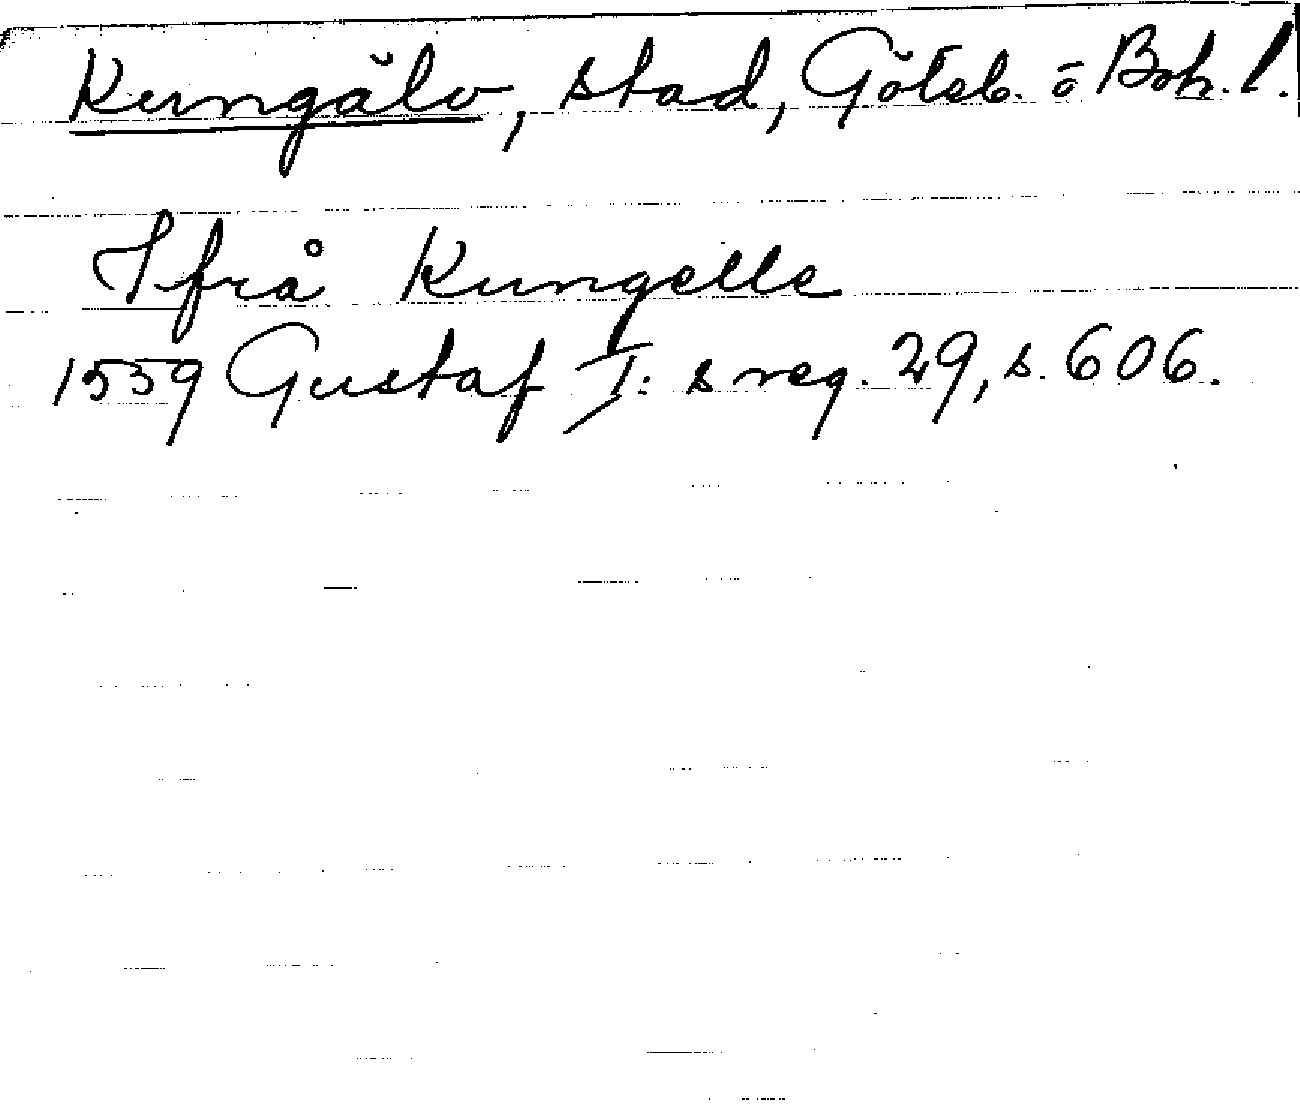 Kungälv, stad, Göteb. o Boh. l.
Ifrå Kungelle
1559 Gustaf I:s reg. 29, s. 606.